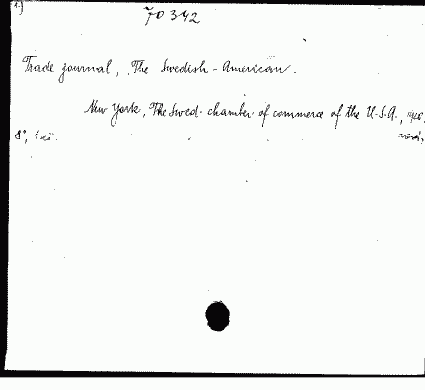 70342
Trade journal, The Swedish-American.
New York, The Swed. chamber of commerce of the U.S.A.,
8°,